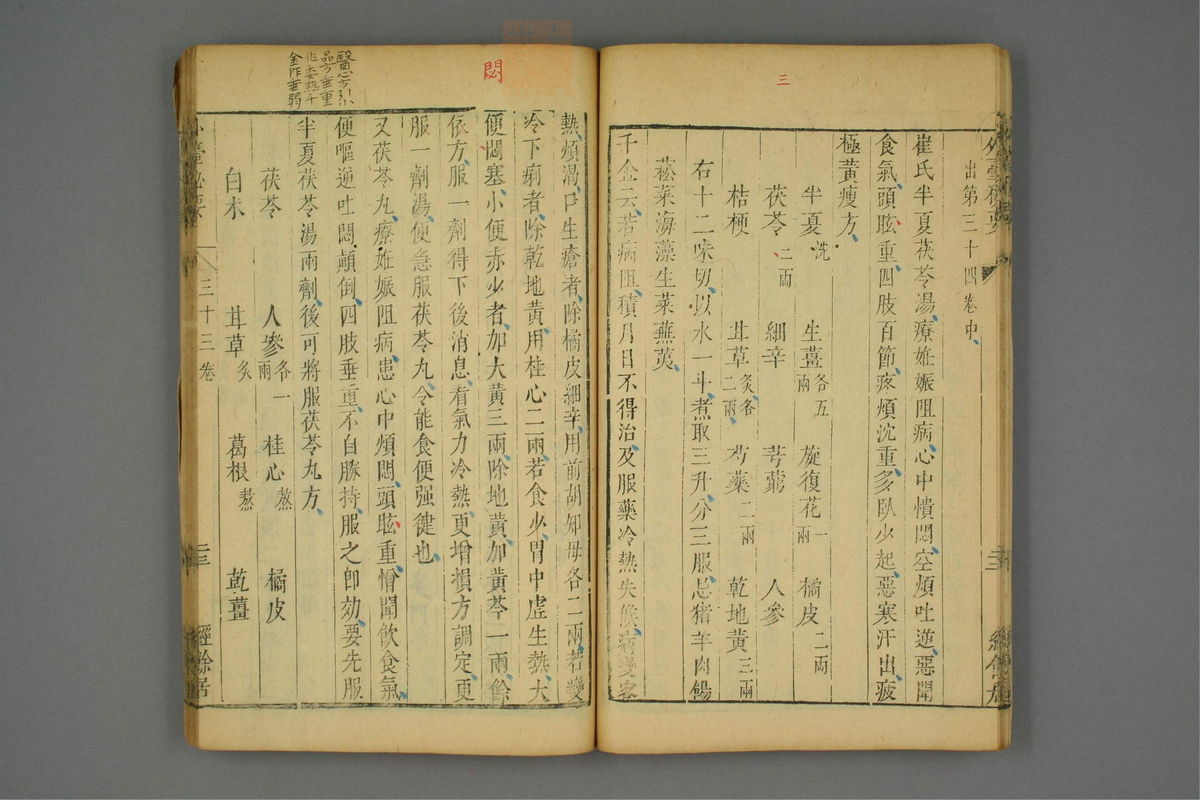 三
出第三十四卷中
崔氏半夏茯苓湯療妊娠阻病心中憒悶空煩吐逆惡聞
食氣頭眩重四肢百節疼煩沈重多臥少起惡寒汗出疲
極黃瘦方
半夏洗 生薑各五兩 旋復花一兩 橘皮二兩
茯苓二兩 細辛 芎藭 人參
桔梗 甘草炙各二兩 芍藥二兩 乾地黃三兩
右十二味切以水一斗煮取三升分三服忌猪羊肉餳
菘菜海藻生菜蕪荑
千金云若病阻積月日不得治及服藥冷熱失候病變客
熱煩渴口生瘡者除橘皮細辛用前胡知母各二兩若變
冷下痢者除乾地黃用桂心二兩若食少胃中虛生熱大
便閟塞小便赤少者加大黃三兩除地黃加黃芩一兩餘
依方服一劑得下後消息看氣力冷熱更增損方調定更
服一劑湯便急服茯苓丸令能食便强健也
又茯苓丸療妊娠阻病患心中煩悶頭眩重憎聞飲食氣
便嘔逆吐悶顛倒四肢垂重不自勝持服之卽効要先服
半夏茯苓湯兩劑後可將服茯苓丸方
茯苓 人參各一兩 桂心熬 橘皮
白朮 甘草炙 葛根熬 乾薑
三十三卷
二十三
經餘居
悶
醫心方引小
品方垂重
作委熱千
金作垂弱